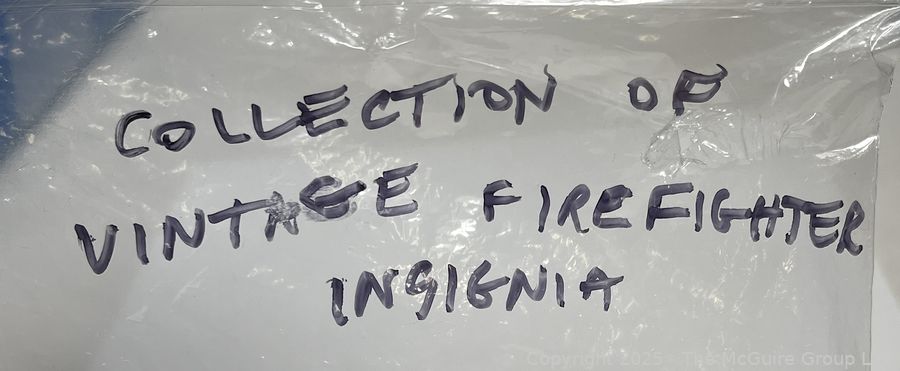 COLLECTION OF
VINTAGE FIREFIGHTER
INSIGNIA
Copyright 2025 - The McGuire Group L